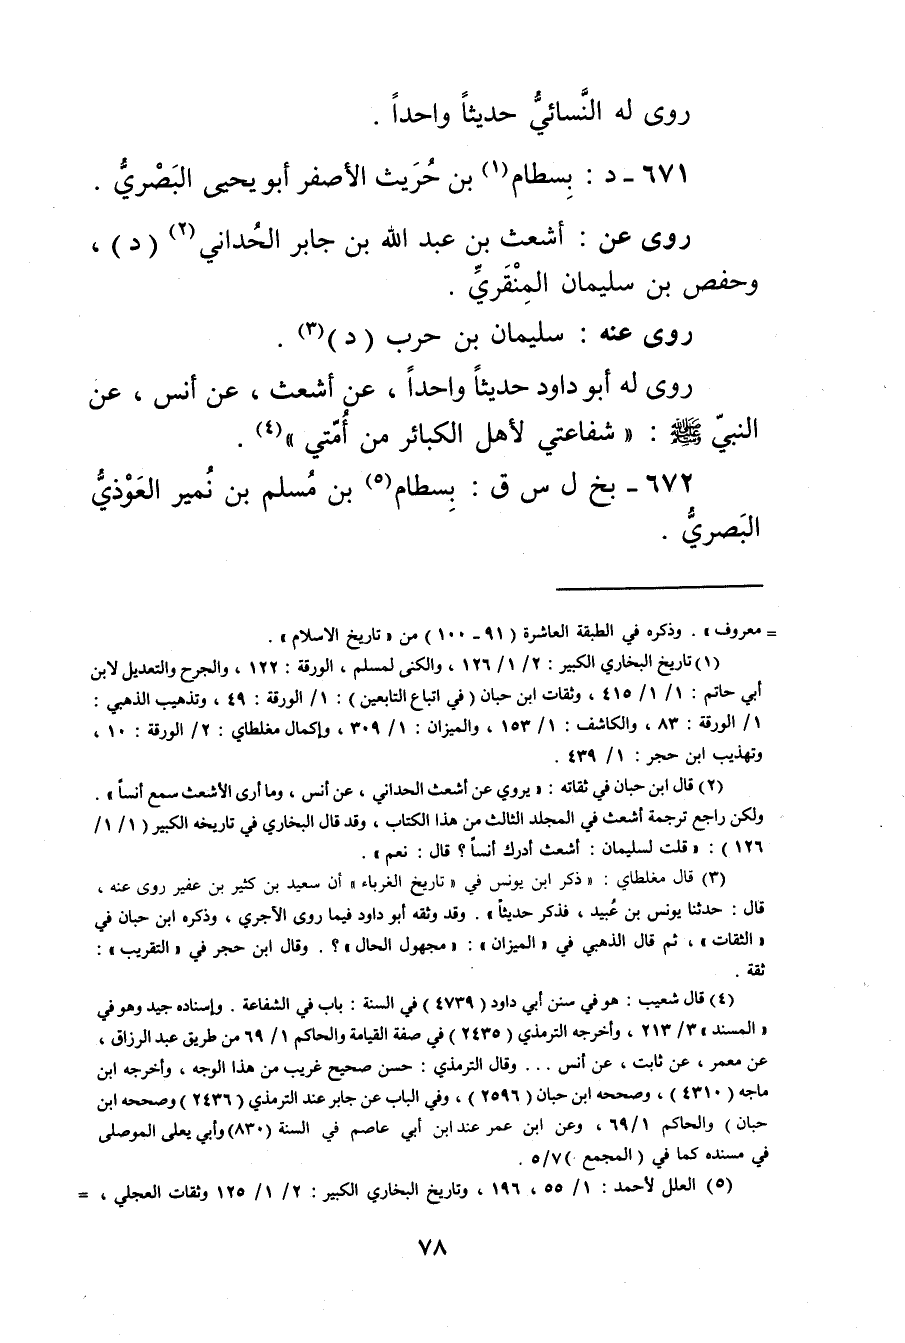 روى له النَّسائيُّ حديثاً واحداً .
٦٧١ ـ د : بِسطام(١) بن حُرَيث الأصفر أبو يحيى البَصْريُّ .
روى عن : أشعث بن عبد الله بن جابر الحُداني(٢) ( د ) ،
وحفص بن سليمان المِنْقَريِّ .
روى عنه : سليمان بن حرب ( د )(٣) .
روى له أبو داود حديثاً واحداً ، عن أشعث ، عن أنس ، عن
النبيّ ﷺ : « شفاعتي لأهل الكبائر من أُمّتي »(٤) .
٦٧٢ ـ بخ ل س ق : بِسطام(٥) بن مُسلم بن نُمير العَوْذيُّ
البَصريُّ .
= معروف » . وذكره في الطبقة العاشرة ( ٩١ ـ ١٠٠ ) من « تاريخ الاسلام » .
(١) تاريخ البخاري الكبير : ٢ / ١ / ١٢٦ ، والكنى لمسلم ، الورقة : ١٢٢ ، والجرح والتعديل لابن
أبي حاتم : ١ / ١ / ٤١٥ ، وثقات ابن حبان ( في اتباع التابعين ) : ١ / الورقة : ٤٩ ، وتذهيب الذهبي :
١ / الورقة : ٨٣ ، والكاشف : ١ / ١٥٣ ، والميزان : ١ / ٣٠٩ ، وإكمال مغلطاي : ٢ / الورقة : ١٠ ،
وتهذيب ابن حجر : ١ / ٤٣٩ .
(٢) قال ابن حبان في ثقاته : « يروي عن أشعث الحداني ، عن أنس ، وما أرى الأشعث سمع أنساً » .
ولكن راجع ترجمة أشعث في المجلد الثالث من هذا الكتاب ، وقد قال البخاري في تاريخه الكبير ( ١ / ١ /
١٢٦ ) : « قلت لسليمان : أشعث أدرك أنساً ؟ قال : نعم » .
(٣) قال مغلطاي : « ذكر ابن يونس في « تاريخ الغرباء » أن سعيد بن كثير بن عفير روى عنه ،
قال : حدثنا يونس بن عُبيد ، فذكر حديثاً » . وقد وثقه أبو داود فيما روى الآجري ، وذكره ابن حبان في
« الثقات » ، ثم قال الذهبي في « الميزان » : « مجهول الحال » ؟ . وقال ابن حجر في « التقريب » :
ثقة .
(٤) قال شعيب : هو في سنن أبي داود ( ٤٧٣٩ ) في السنة : باب في الشفاعة . وإسناده جيد وهو في
« المسند » ٣ / ٢١٣ ، وأخرجه الترمذي ( ٢٤٣٥ ) في صفة القيامة والحاكم ١ / ٦٩ من طريق عبد الرزاق ،
عن معمر ، عن ثابت ، عن أنس ... وقال الترمذي : حسن صحيح غريب من هذا الوجه ، وأخرجه ابن
ماجه ( ٤٣١٠ ) ، وصححه ابن حبان ( ٢٥٩٦ ) ، وفي الباب عن جابر عند الترمذي ( ٢٤٣٦ ) وصححه ابن
حبان ) والحاكم ١ / ٦٩ ، وعن ابن عمر عند ابن أبي عاصم في السنة (٨٣٠) وأبي يعلى الموصلي
في مسنده كما في ( المجمع ) ٧ / ٥ .
(٥) العلل لأحمد : ١ / ٥٥ ، ١٩٦ ، وتاريخ البخاري الكبير : ٢ / ١ / ١٢٥ وثقات العجلي ، =
٧٨